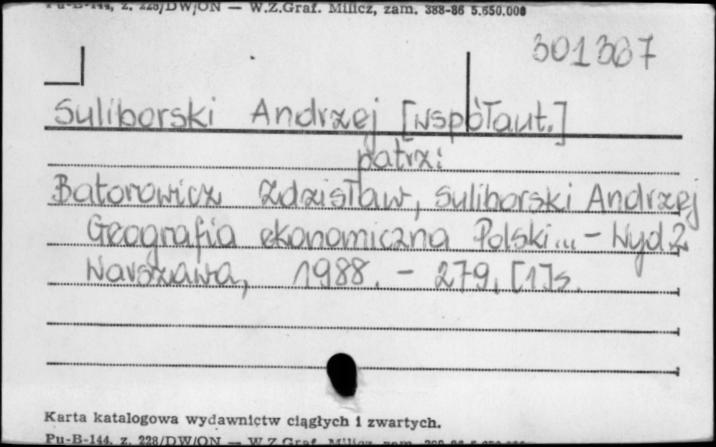 Pu-B-144, z. 228/DW/ON — W.Z.Graf. Milicz, zam. 388-86 5.650.000
301307
Suliborski Andrzej [współaut.]
patrz:
Batorowicz Zdzisław, Suliborski Andrzej
Geografia ekonomiczna Polski... - Wyd 2
Warszawa, 1988. - 279, [1] s.
Karta katalogowa wydawnictw ciągłych i zwartych.
Pu-B-144, z. 228/DW/ON — W.Z.Graf. Milicz, zam.